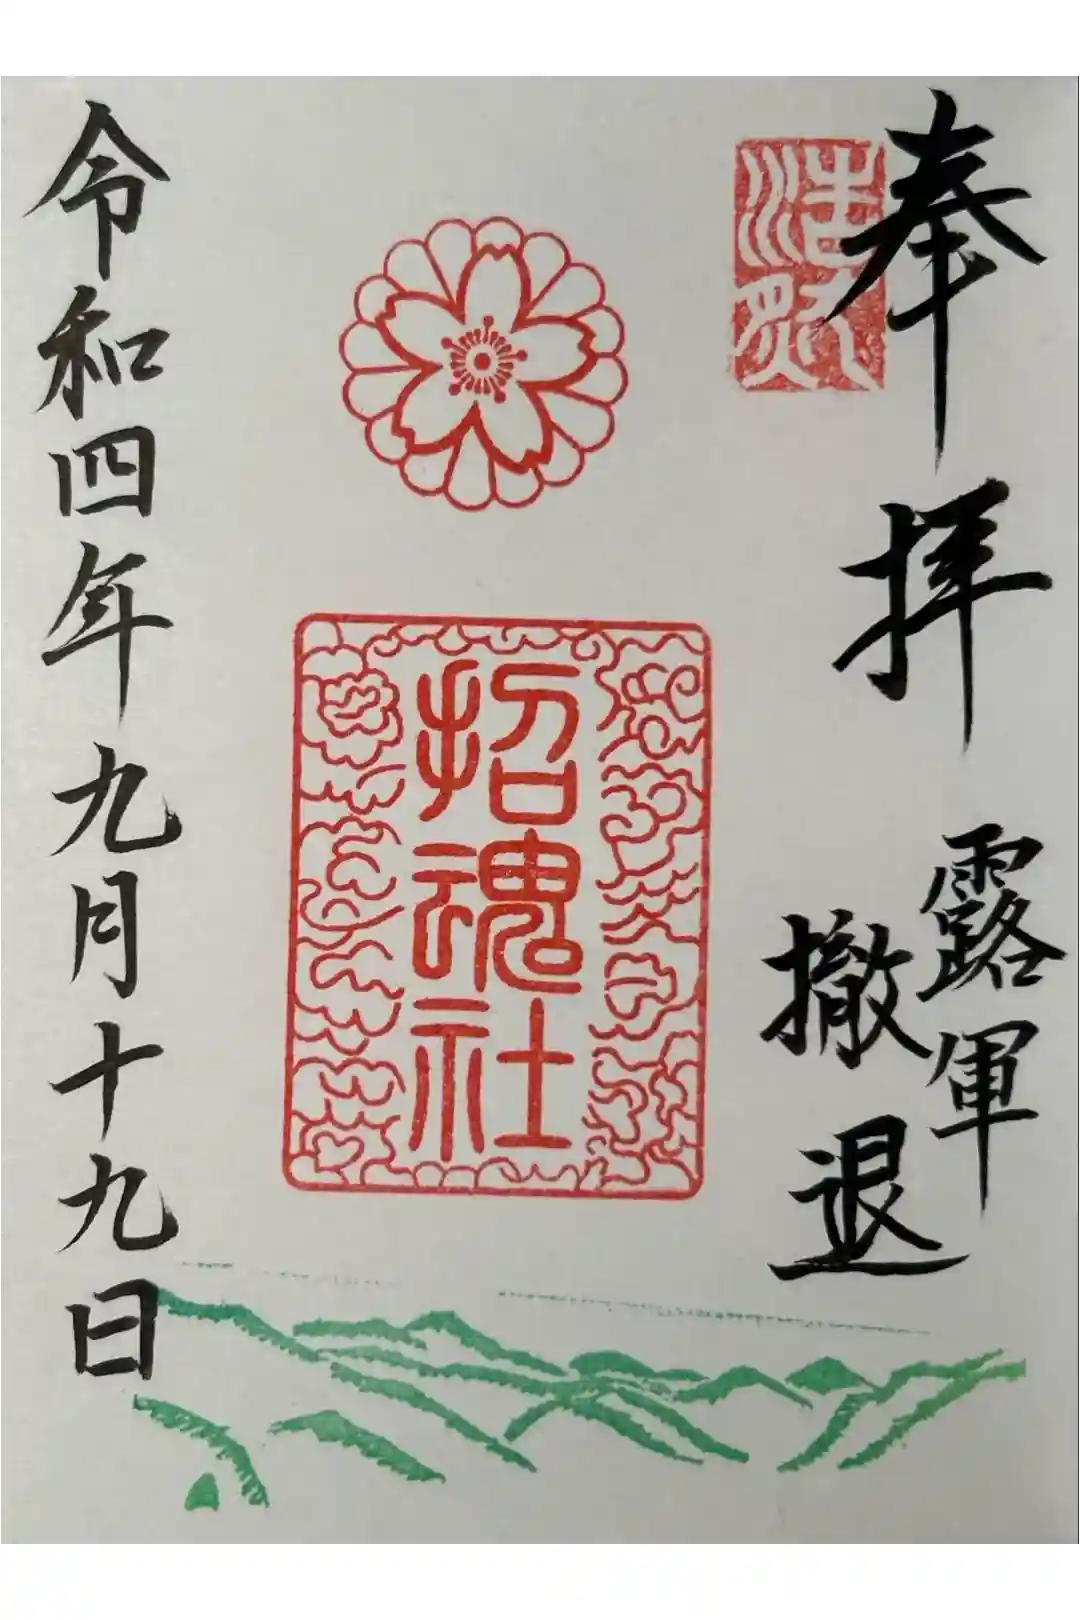 浩然
奉拝
露軍
撤退
招魂社
令和四年九月十九日